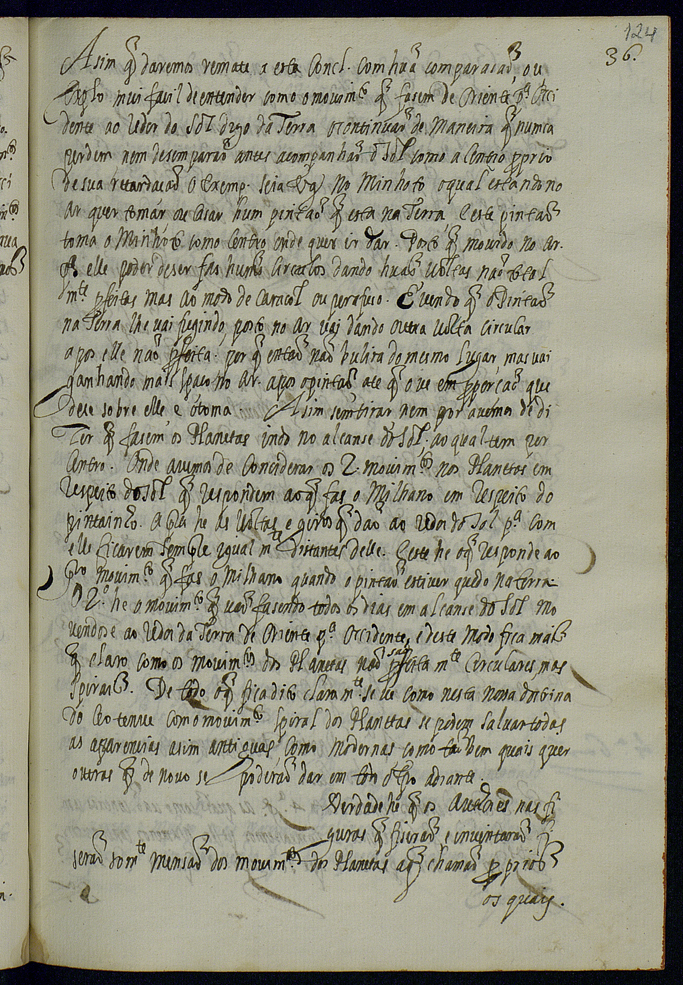 124
36.
Asim q̃ daremos remate a esta Concl. com huã comparasaõ, ou
Exẽplo mui facil de entender como o movim.to q̃ fasem de Oriente p.a Occi
dente ao redor do Sol digo da Terra o continuaõ de Maneira q̃ nunca
perdem nem desemparaõ antes acompanhaõ o Sol como a Centro pprio
de sua retardasaõ. O Exemp. seia no Minhoto o qual estando no
Ar quer tomar ou casar hum pintaõ q̃ esta na Terra. Este pintaõ
toma o Minhoto como Centro onde quer ir dar. Posto q̃ movido no Ar.
elle poder deser fas huns Circulos dando huãs voltas naõ total
m.te pfeitas mas ao modo de Caracol ou parafuso. E vendo q̃ o Pintaõ
na Terra lhe vai fugindo, posto no Ar vai dando outra volta Circular
apos elle naõ pfeita. por q̃ entaõ naõ bulira do mesmo Lugar mas vai
ganhando mais spaso no Ar. apos o pintaõ ate q̃ o ve em pporçaõ que
dese sobre elle e o toma. Asim sem tirar nem por avemos de di
zer q̃ fasem os Planetas indo no alcanse do Sol, ao qual tem por
Centro. Onde avemos de Considerar os 2. movim.tos nos Planetas em
respeito do Sol q̃ respondem ao q̃ fas o Milhano em respeito do
pintainho. A pr.a he as voltas e giros q̃ daõ ao redor do Sol p.a com
elle ficarem sempre igual m.te distantes delle. Este he o q̃ responde ao
pr.o movim.to q̃ fas o Milhano quando o pintaõ estiver quedo na terra.
O 2.o he o movim.to q̃ vaõ fasendo todos os dias em alcanse do Sol mo
vendose ao redor da Terra de Oriente p.a Occidente, e deste modo fica mais
q̃ claro como os movim.tos dos Planetas naõ saõ pfeita m.te Circulares, mas
Spirais. De todo o q̃ fica dito clara m.te se ve como nesta nova doutrina
do Ceo tenue com o movim.to Spiral dos Planetas se podem salvar todas
as aparencias asim antiguas como modernas como tãbem quais quer
outras q̃ de novo se poderaõ dar em todo o tpo adiante.
Verdade he q̃ os Autores nas fi
guras q̃ fiseraõ e inventaraõ
seraõ som.te mensaõ dos movim.tos dos Planetas a q̃ chamaõ pprios
os quais.